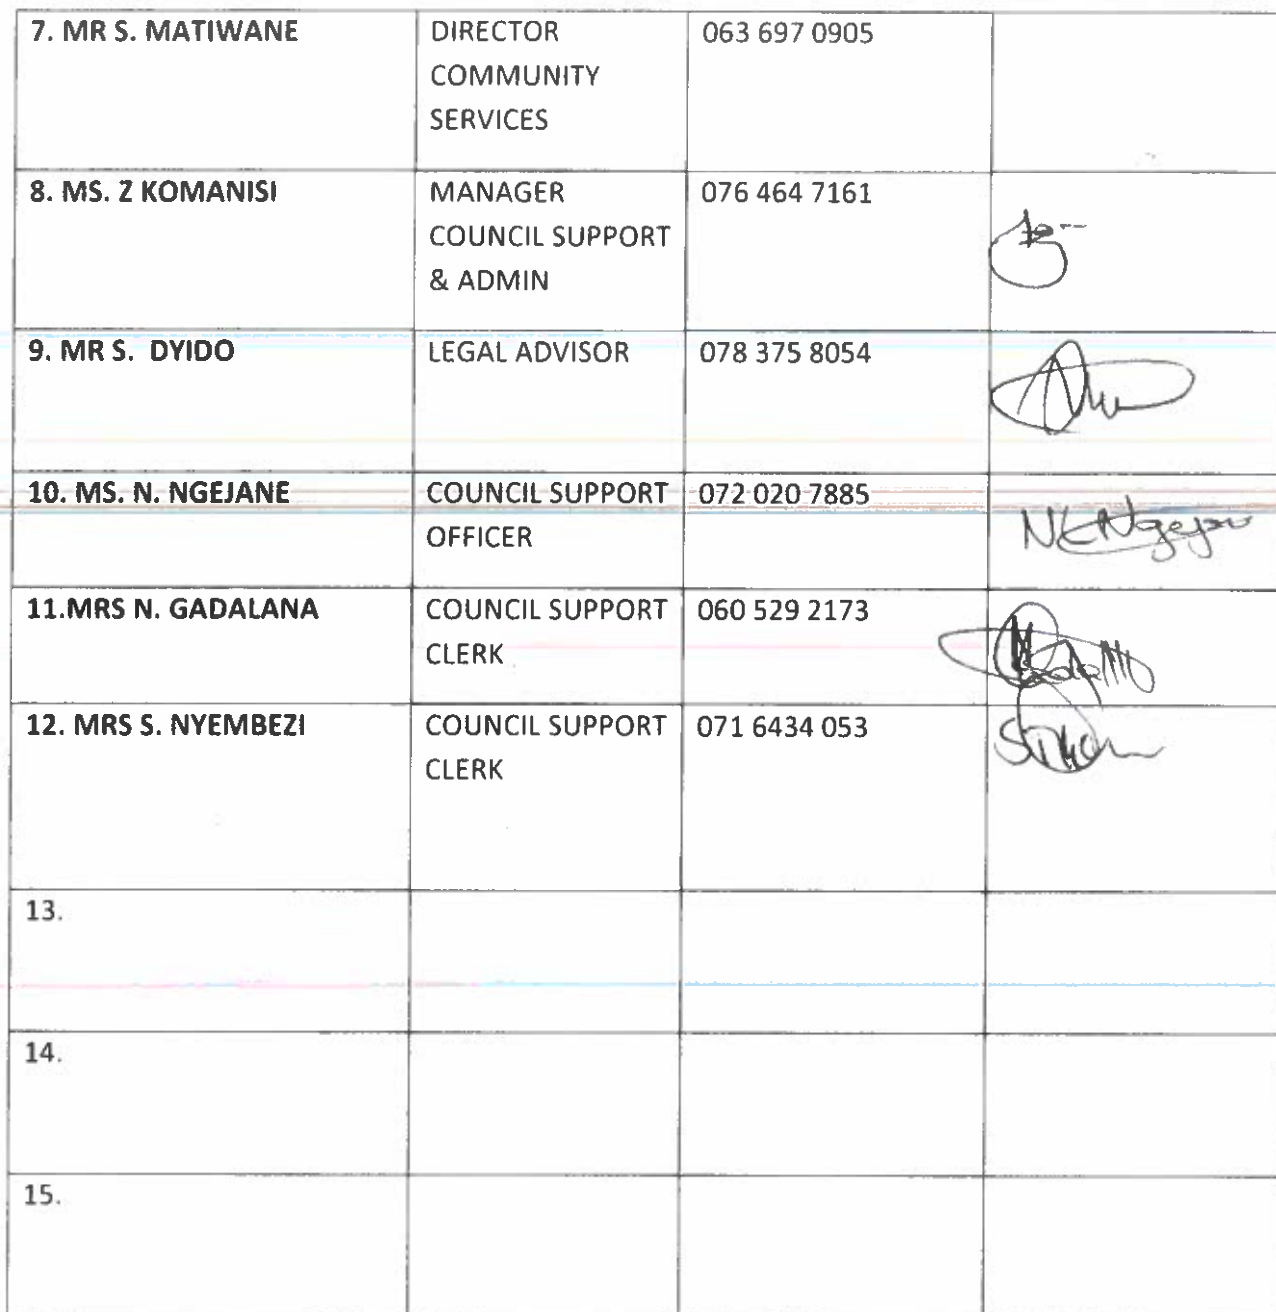 7. MR S. MATIWANE
DIRECTOR
COMMUNITY
SERVICES
063 697 0905
8. MS. Z KOMANISI
MANAGER
COUNCIL SUPPORT
& ADMIN
076 464 7161
9. MR S. DYIDO
LEGAL ADVISOR
078 375 8054
10. MS. N. NGEJANE
COUNCIL SUPPORT
OFFICER
072 020 7885
11.MRS N. GADALANA
COUNCIL SUPPORT
CLERK
060 529 2173
12. MRS S. NYEMBEZI
COUNCIL SUPPORT
CLERK
071 6434 053
13.
14.
15.